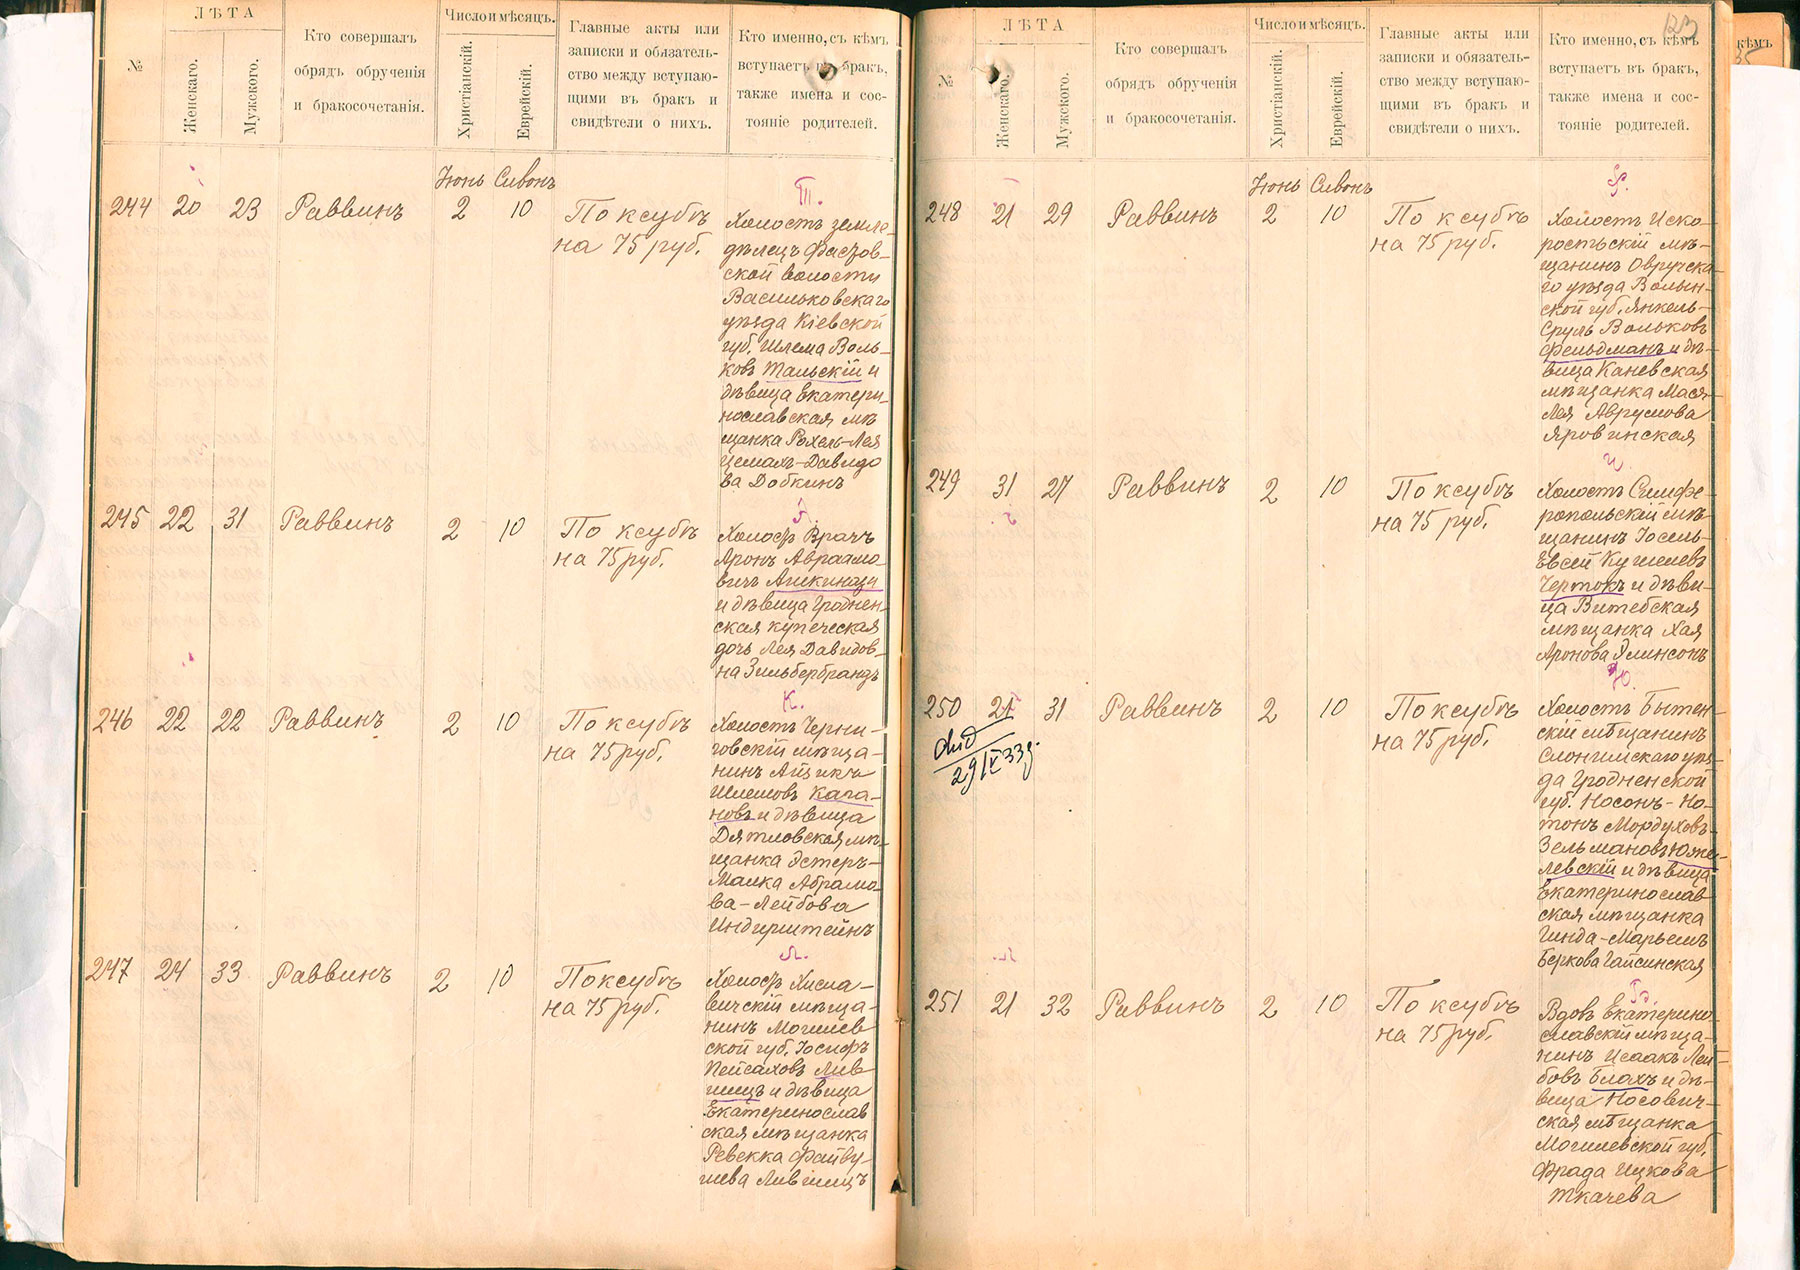 ЛѢТА
№
Женскаго.
Мужского.
Кто совершалъ
обрядъ обрученія
и бракосочетанія.
Число и мѣсяцъ.
Христіанскій.
Еврейскій.
Главные акты или
записки и обязатель-
ство между вступаю-
щими въ бракъ и
свидѣтели о нихъ.
Кто именно, съ кѣмъ
вступаетъ въ бракъ,
также имена и сос-
тояніе родителей.
Іюнь Сивонъ
244 20 23 Раввинъ 2 10 По ксубѣ
на 75 руб.
Т.
Холостъ земле-
дѣлецъ Фастов-
ской волости
Васильковскаго
уѣзда Кіевской
губ. Шлема Воль-
ковъ Тальскій и
дѣвица Екатери-
нославская мѣ
щанка Рохель-Лея
Цемахъ-Давидо
ва Добкинъ
245 22 31 Раввинъ 2 10 По ксубѣ
на 75 руб.
Холостъ Врачъ
Аронъ Авраамо-
вичъ Ашкинази
и дѣвица Гроднен-
ская купеческая
дочь Лея Давидов-
на Зильбербрандъ
246 22 22 Раввинъ 2 10 По ксубѣ
на 75 руб.
К.
Холостъ Черни-
говскій мѣща-
нинъ Айзикъ
Шлемовъ Кага-
новъ и дѣвица
Дятловская мѣ-
щанка Эстеръ-
Малка Абрамо-
ва-Лейбова
Индерштейнъ
247 24 33 Раввинъ 2 10 По ксубѣ
на 75 руб.
Л.
Холостъ Хисла-
вичскій мѣща-
нинъ Могилев
ской губ. Іосифъ
Пейсаховъ Лив
шицъ и дѣвица
Екатеринослав
ская мѣщанка
Ревекка Файву-
шева Лившицъ
ЛѢТА
№
Женскаго.
Мужского.
Кто совершалъ
обрядъ обрученія
и бракосочетанія.
Число и мѣсяцъ.
Христіанскій.
Еврейскій.
Главные акты или
записки и обязатель-
ство между вступаю-
щими въ бракъ и
свидѣтели о нихъ.
Кто именно, съ кѣмъ
вступаетъ въ бракъ,
также имена и сос-
тояніе родителей.
кѣмъ
Іюнь Сивонъ
248 21 29 Раввинъ 2 10 По ксубѣ
на 75 руб.
Ф.
Холостъ Иско-
ростьскій мѣ-
щанинъ Овручска-
го уѣзда Волын-
ской губ. Янкель-
Сруль Вольковъ
Фельдманъ и дѣ-
вица Каневская
мѣщанка Мася-
Лея Аврумова
Яровинская
249 31 27 Раввинъ 2 10 По ксубѣ
на 75 руб.
Ч.
Холостъ Симфе-
ропольскій мѣ-
щанинъ Іосель-
Евсей Кушелевъ
Чертокъ и дѣви-
ца Витебская
мѣщанка Хая
Аронова Элинсонъ
250 21 31 Раввинъ 2 10 По ксубѣ
на 75 руб.
29/IV 33 г.
Ю.
Холостъ Бытен-
скій мѣщанинъ
Слонимскаго уѣз-
да Гродненской
губ. Носонъ-Но-
тонъ Мордуховъ-
Зельмановъ Юже-
левскій и дѣвица
Екатеринослав
ская мѣщанка
Гинда-Марьемъ
Беркова Гайсинская
251 21 32 Раввинъ 2 10 По ксубѣ
на 75 руб.
Вдовъ Екатерино-
славскій мѣща-
нинъ Исаакъ Лей-
бовъ Блахъ и дѣ-
вица Носович-
ская мѣщанка
Могилевской губ.
Фрада Ицкова
Ткачева